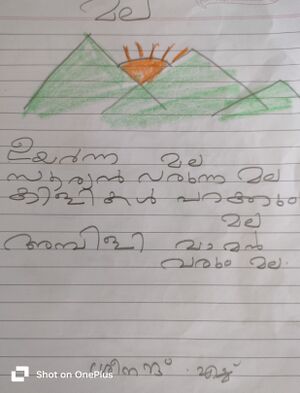 മല
ഉയർന്ന മല
സൂര്യൻ വരുന്ന മല
കിളികൾ പറക്കും
മല
അമ്പിളി മാമൻ
വരും മല
ശ്രീനന്ദ്.എസ്
Shot on OnePlus